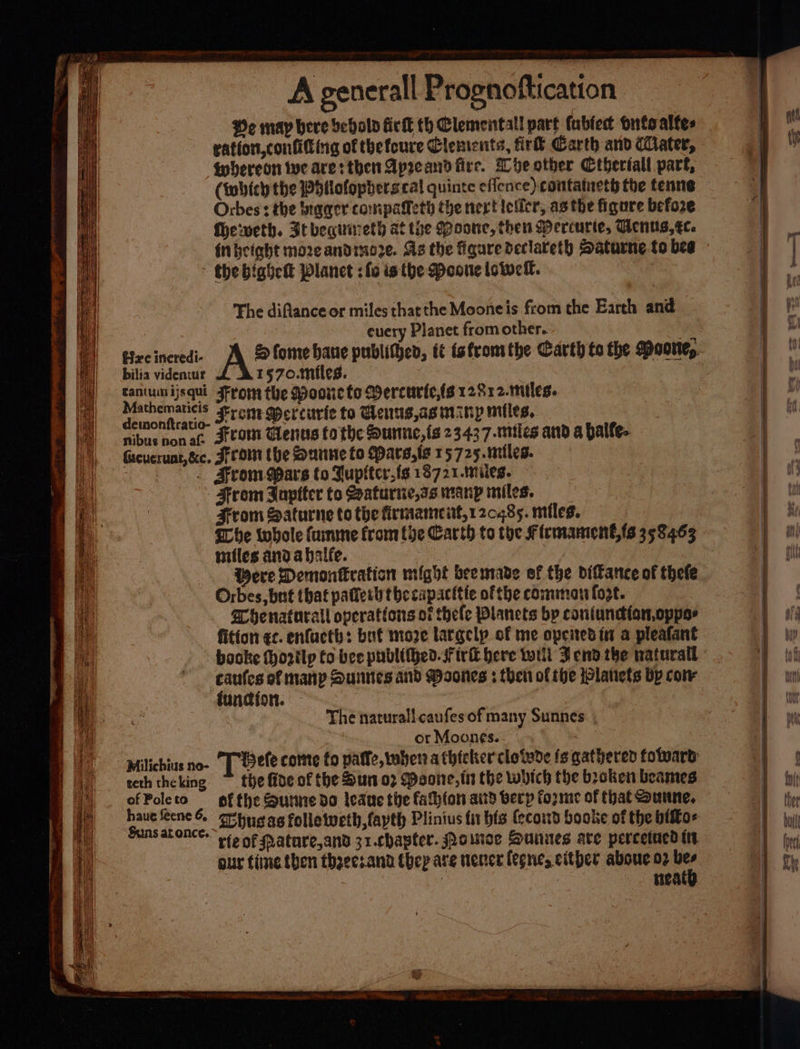 A generall Prognoſtication
We may here behold firſt th Elementall part ſubiect vnto alte-
ration, conſiſting of the foure Elements, firſt Earth and Water,
whereon we are: then Ayre and fire. The other Etheriall part,
(which the Philoſophers cal quinte eſſence) containeth the tenne
Orbes: the bigger compaſſeth the next leſſer, as the figure before
ſheweth. It beginneth at the Moone, then Mercurie, Venus, &c.
in height more and more. As the figure declareth Saturne to bee
the higheſt Planet: ſo is the Moone loweſt.
The diſtance or miles that the Moone is from the Earth and
euery Planet from other.
Hæc incredi-
bilia videntur
tantum ijs qui
Mathematicis
demonſtratio-
nibus non aſ-
ſueuerunt, &c.
AS ſome haue publiſhed, it is from the Earth to the Moone,
1570. miles.
From the Moone to Mercurie, is 12812. miles.
From Mercurie to Venus, as many miles.
From Venus to the Sunne, is 23437. miles and a halfe.
From the Sunne to Mars, is 15725. miles.
From Mars to Iupiter, is 18721. miles.
From Iupiter to Saturne, as many miles.
From Saturne to the firmament, 120485. miles.
The whole ſumme from the Earth to the Firmament, is 358463
miles and a halfe.
Here Demonſtration might bee made of the diſtance of theſe
Orbes, but that paſſeth the capacitie of the common ſort.
The naturall operations of theſe Planets by coniunction, oppo-
ſition &c. enſueth: but more largely of me opened in a pleaſant
booke ſhortly to bee publiſhed. Firſt here will I end the naturall
cauſes of many Sunnes and Moones: then of the Planets by con-
iunction.
The naturall cauſes of many Sunnes
or Moones.
Milichius no-
teth the king
of Pole to
haue ſeene 6.
Suns at once.
THeſe come to paſſe, when a thicker clowde is gathered toward
the ſide of the Sun or Moone, in the which the broken beames
of the Sunne do leaue the faſhion and very forme of that Sunne.
Thus as followeth, ſayth Plinius in his ſecond booke of the hiſto-
rie of Nature, and 31. chapter. No moe Sunnes are perceiued in
our time then three: and they are neuer ſeene, either aboue or be-
neath